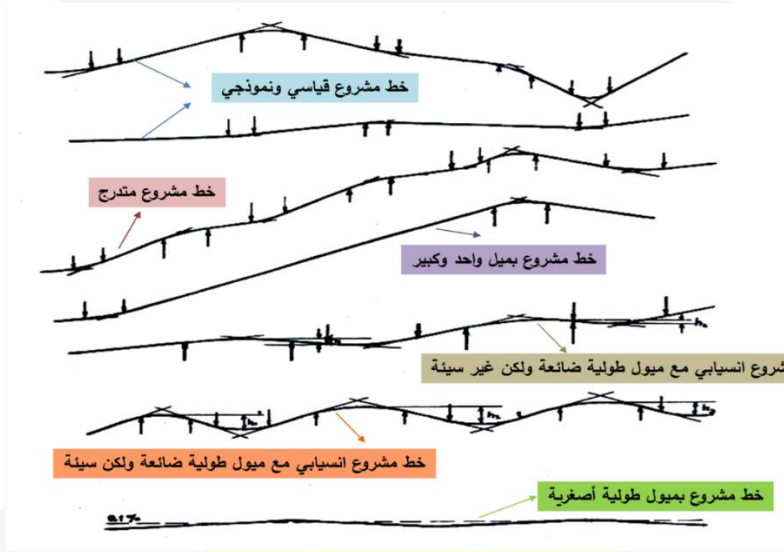 خط مشروع قياسي ونموذجي
خط مشروع متدرج
خط مشروع بميل واحد وكبير
شروع انسيابي مع ميول طولية ضائعة ولكن غير سيئة
خط مشروع انسيابي مع ميول طولية ضائعة ولكن سيئة
خط مشروع بميول طولية أصغرية